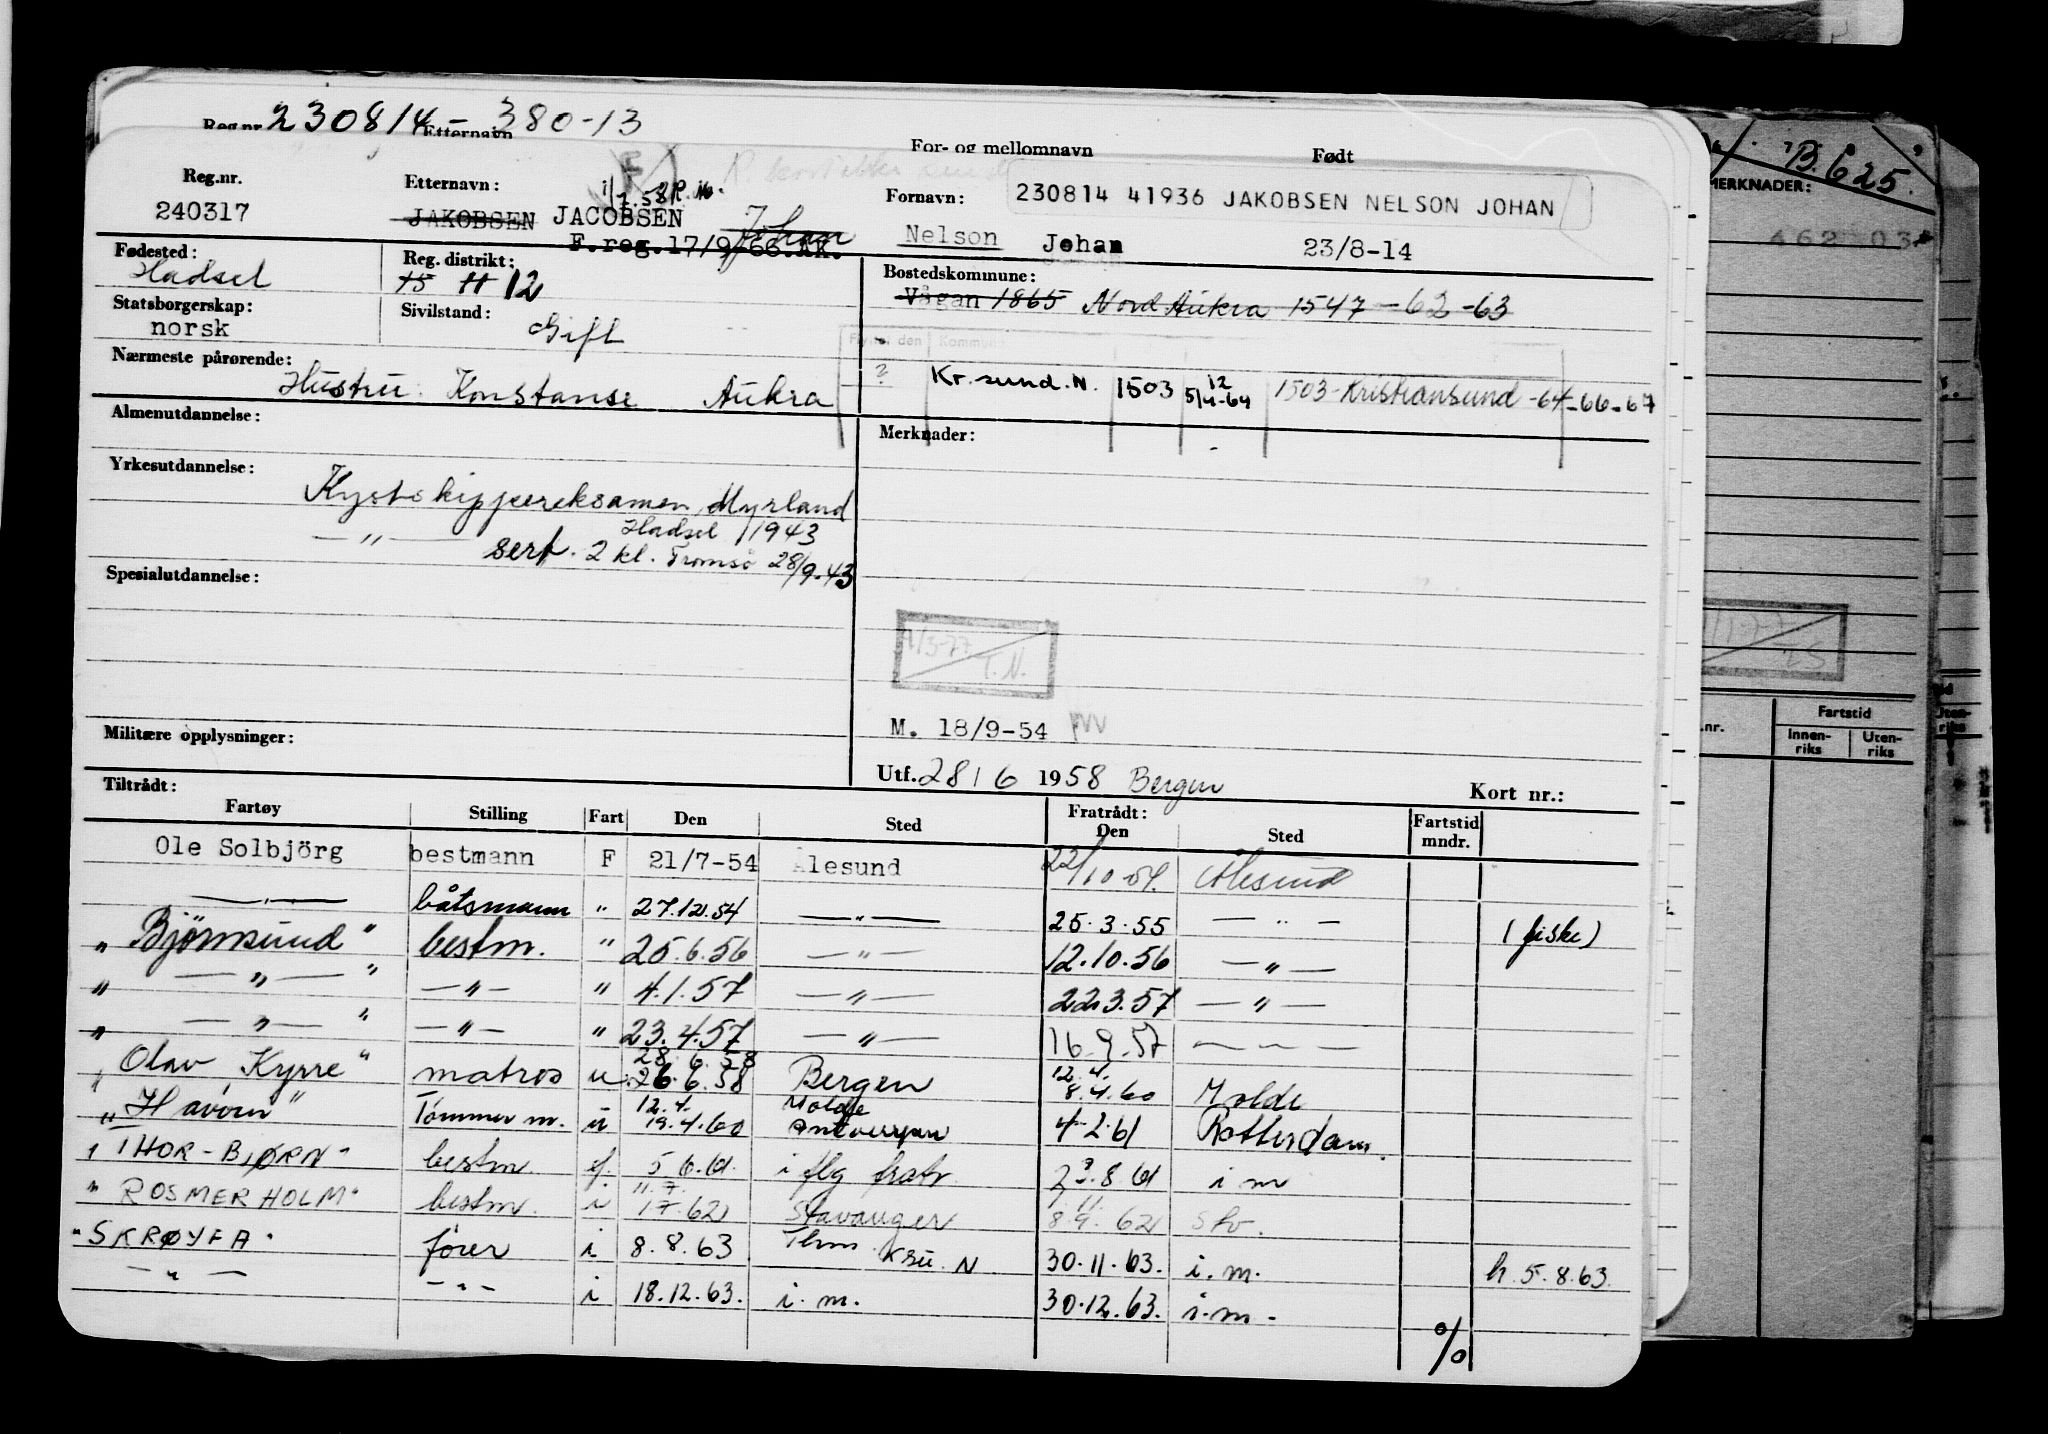 230814-380-13
For- og mellomnavn Født
B.625.
MERKNADER:
Reg.nr. Etternavn: Fornavn: 230814 41936 JAKOBSEN NELSON JOHAN
240317 JAKOBSEN JACOBSEN Johan Nelson Johan 23/8-14
F.reg.17/9-66.AK.
Fødested: Reg. distrikt: Bostedskommune:
Hadsel H 12 Vågan 1865 Nord Aukra 1547 - 62 - 63
Statsborgerskap: Sivilstand:
norsk Gift
Nærmeste pårørende: ? Kr.sund.N. 1503 1503-Kristiansund -64-66-67
Hustru: Konstanse Aukra
Almenutdannelse: Merknader:
Yrkesutdannelse:
Kystskippereksamen, Myrland
Hadsel 1943
— " — sert. 2 kl. Tromsø 28/9.43
Spesialutdannelse:
T.N.
M. 18/9-54
Militære opplysninger:
Utf. 28/6 1958 Bergen Kort nr.:
Tiltrådt: Fratrådt:
Fartøy Stilling Fart Den Sted Den Sted Fartstid mndr.
Ole Solbjörg bestmann F 21/7-54 Ålesund 22/10-54. Ålesund
— " — båtsmann " 27.12.54 — " — 25.3.55 — " — (fiske)
"Bjørnsund" bestm. " 25.6.56 — " — 12.10.56 — " —
" — " — " — " — " 4.1.57 — " — 22.3.57 — " —
" — " — " — " — " 23.4.57 — " — 16.9.57 — " —
28.6.58 12.4.
"Olav Kyrre" matros u 26.6.58 Bergen 8.4.60 Molde
12.4. Molde
"Havørn" Tømmerm. u 19.4.60 Antwerpen 4-2.61 Rotterdam.
"THOR-BJØRN" bestm. 5.6.61. i flg fratr. 8.61 i m
11.7.
"ROSMERHOLM" bestm. i 62 Stavanger 62 Stv.
"SKRØYFA" fører i 8.8.63 Ksu. N 30.11.63. i.m. h. 5.8.63.
— " — — " — i 18.12.63. i.m. 30.12.63. i.m.
%
.nr. Fartstid
Innenriks Utenriks